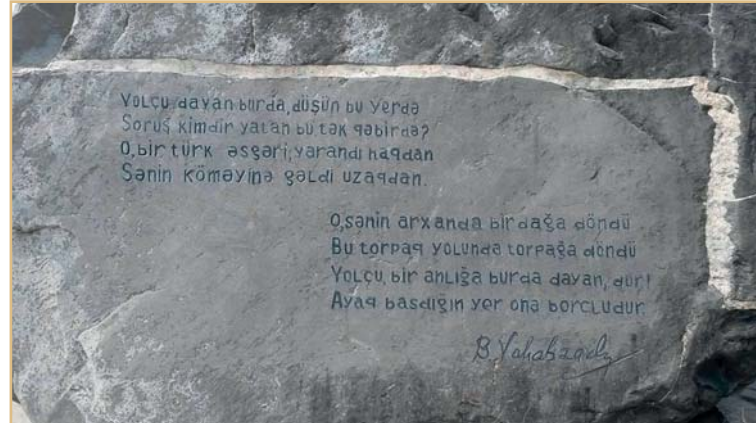 Yolçu, dayan burda, düşün bu yerdə
Soruş kimdir yatan bu tək qəbirdə?
O, bir türk əsgəri, yarandı haqdan
Sənin köməyinə gəldi uzaqdan.
O, sənin arxanda bir dağa döndü
Bu torpaq yolunda torpağa döndü
Yolçu, bir anlığa burda dayan, dur!
Ayaq basdığın yer ona borcludur.
B. Vahabzadə